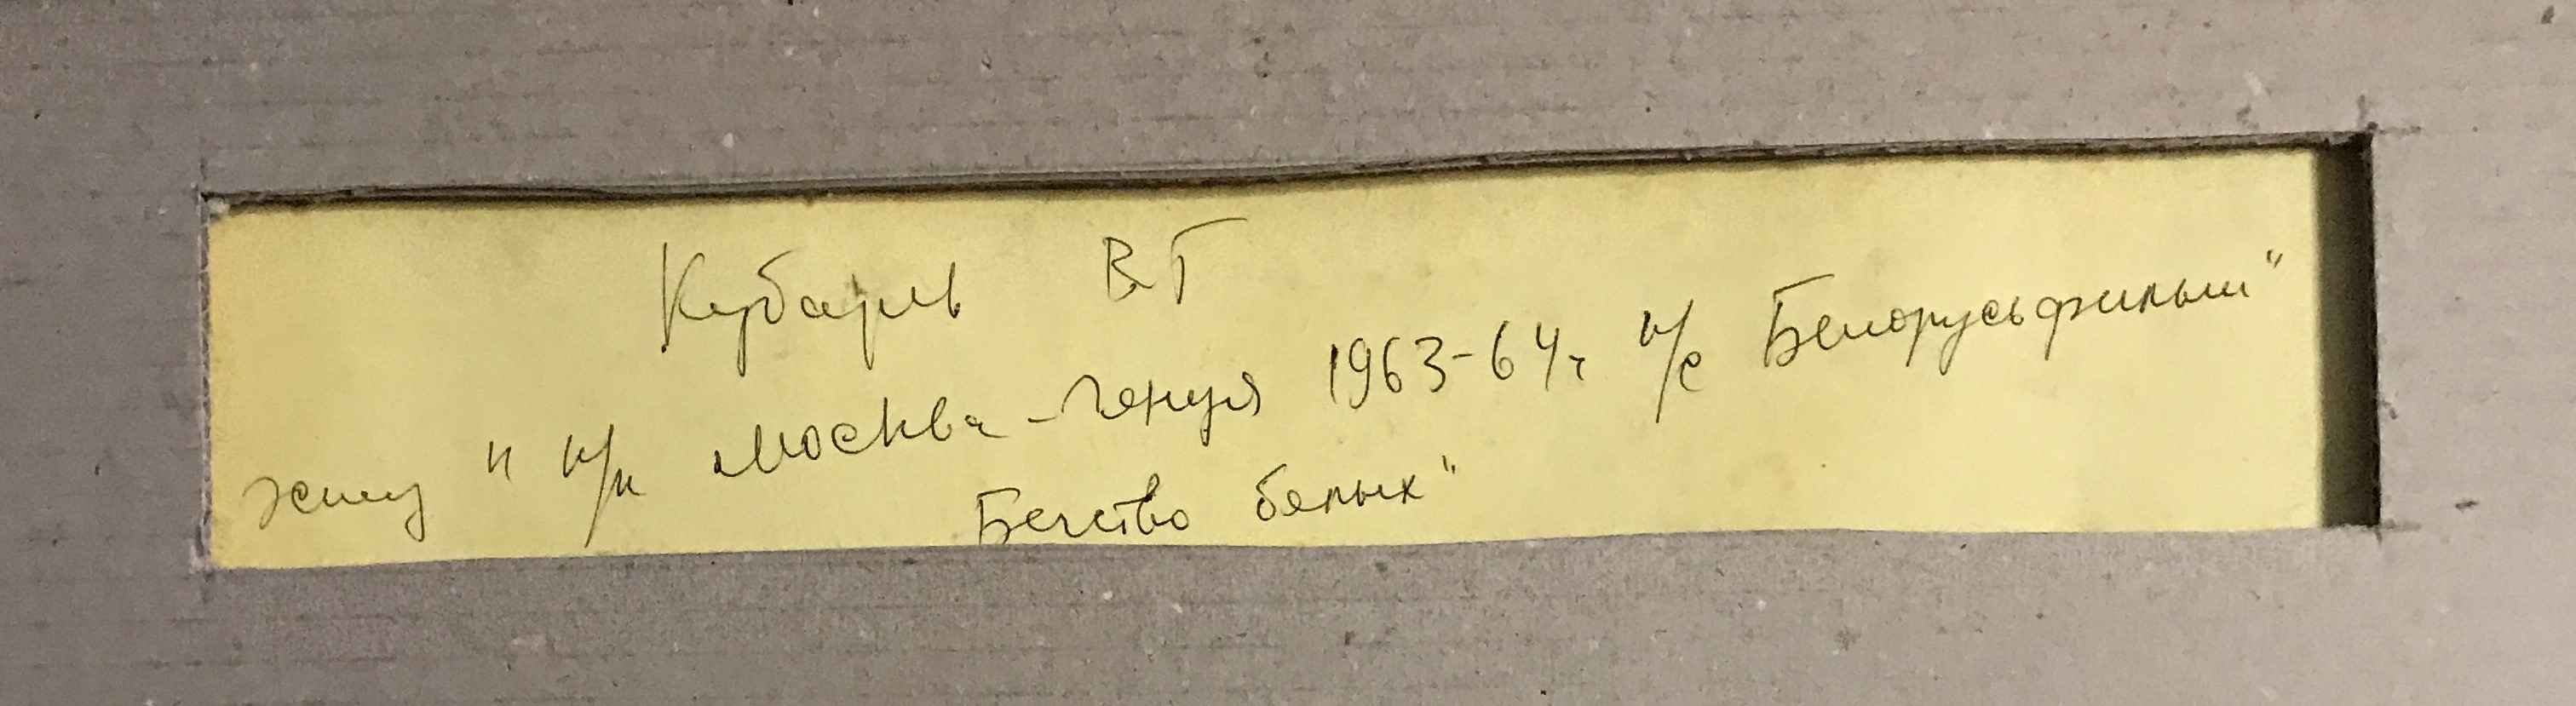 Кубарев В.Г
эскиз " к/к Москва - Генуя 1963-64г к/с Белорусьфильм"
Бегство белых"